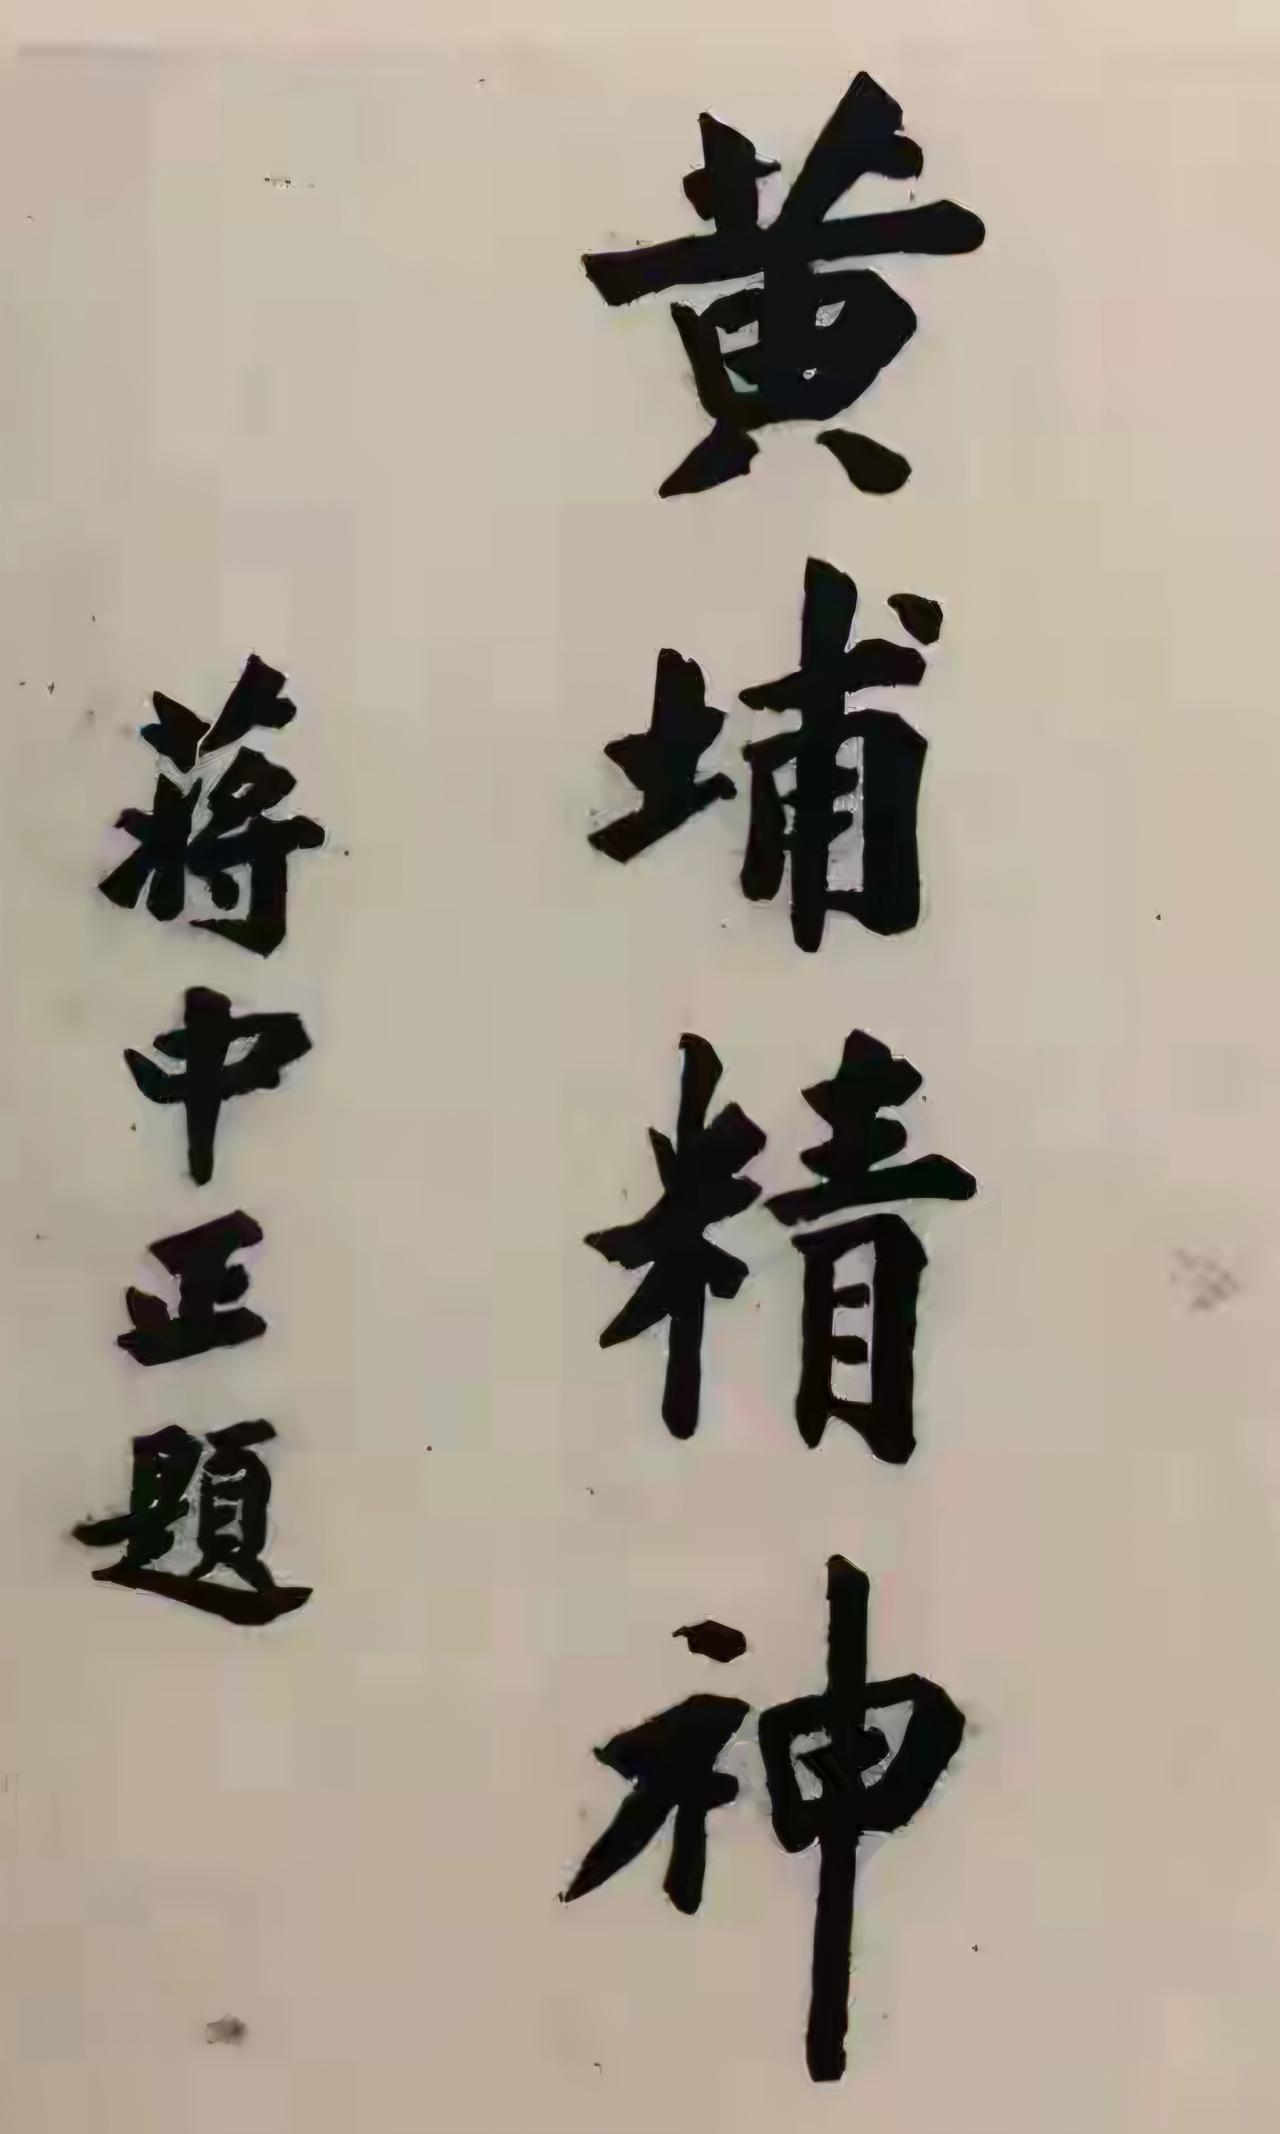 黄埔精神
蔣中正題